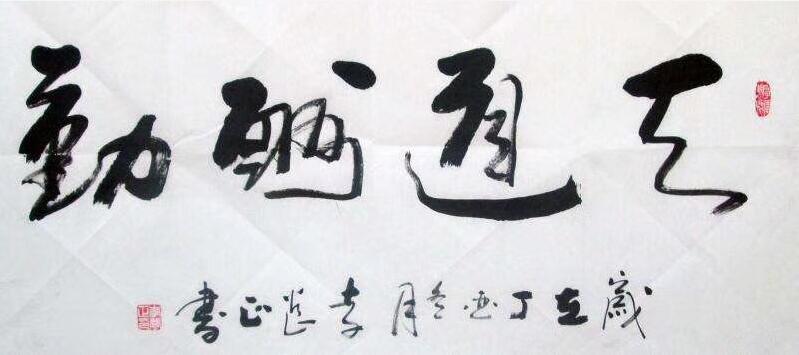 天道酬勤
歲在丁酉冬月李正書